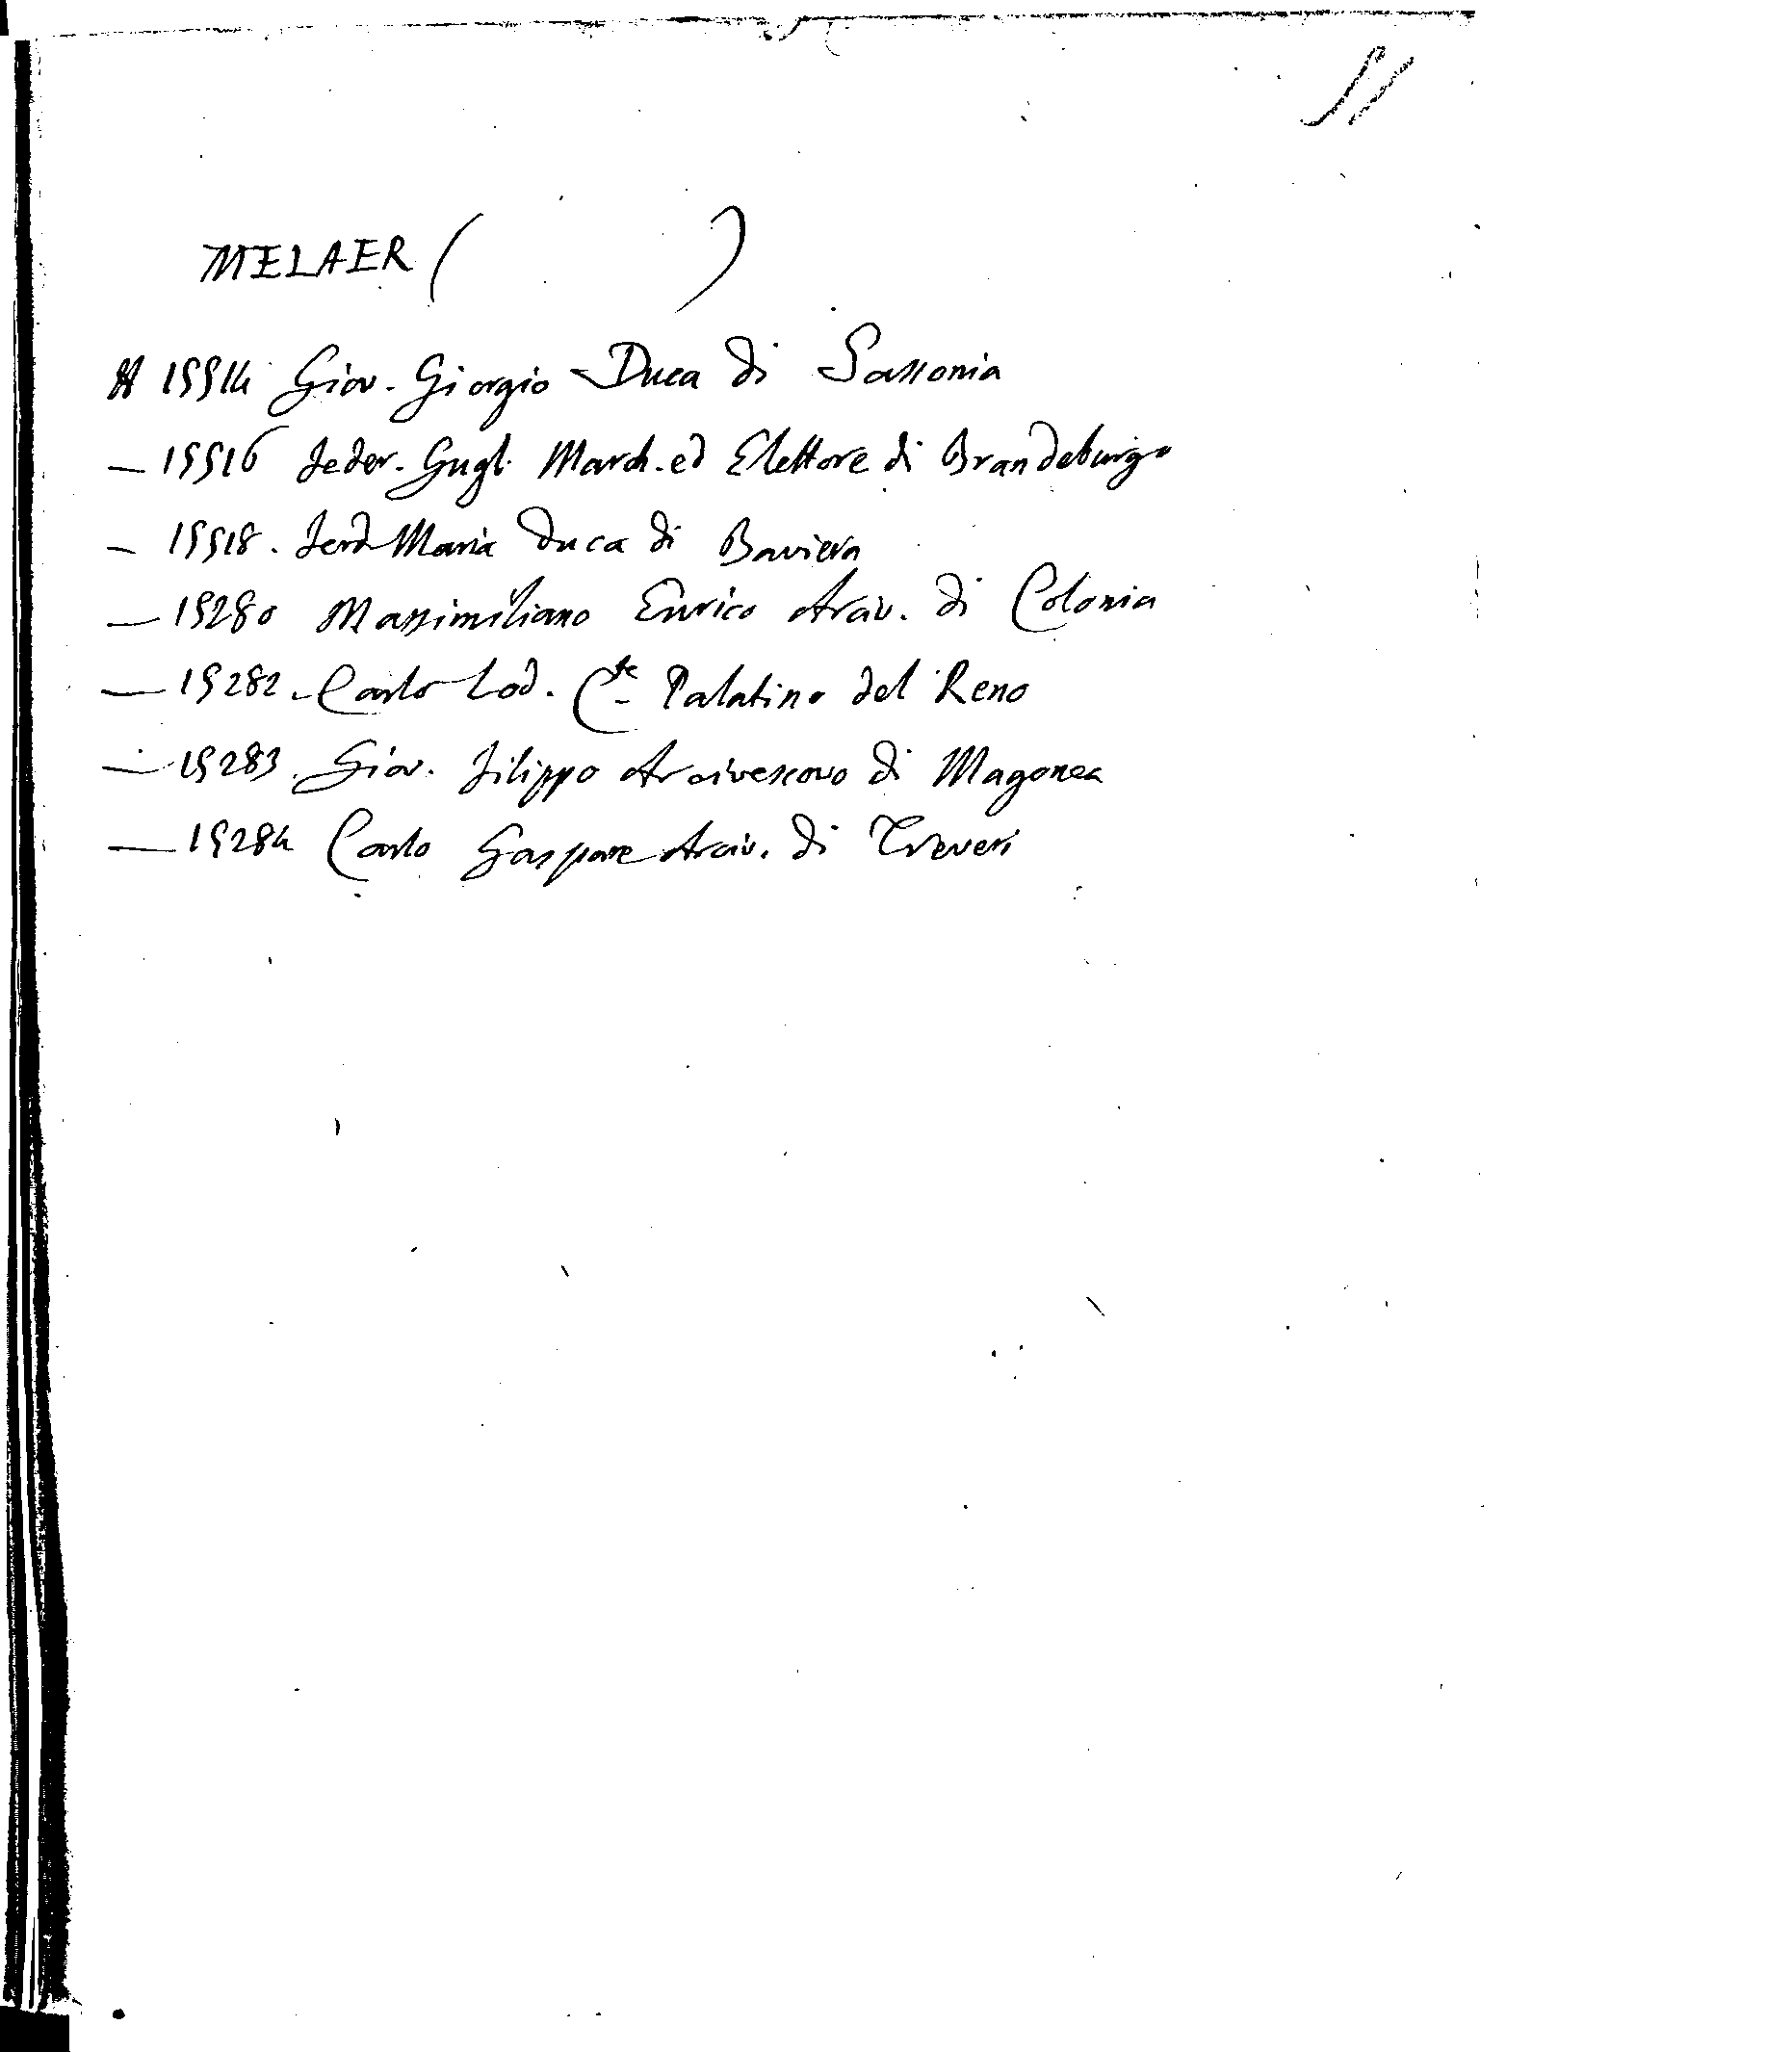 51
MELAER ( )
A 15514 Giov. Giorgio Duca di Sassonia
— 15516 Feder. Gugl. March. ed Elettore di Brandeburgo
— 15518. Ferd Maria Duca di Baviera
— 15280 Massimiliano Enrico Arciv. di Colonia
— 15282. Carlo Lod. Cte Palatino del Reno
— 15283. Giov. Filippo Arcivescovo di Magonza
— 15284 Carlo Gaspare Arciv. di Treveri